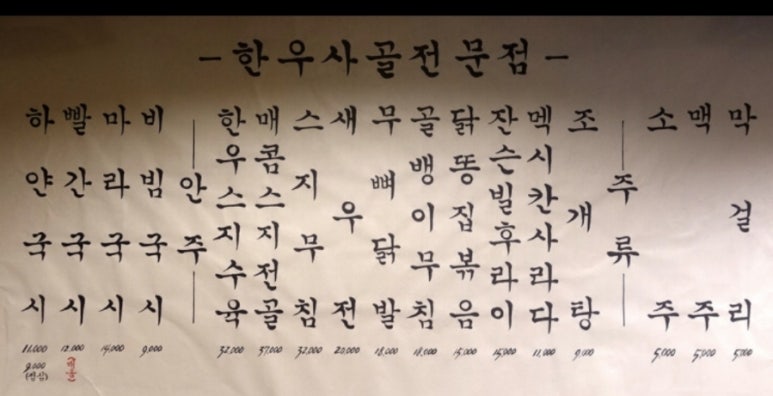 - 한우사골전문점 -
하얀국시 11,000
9,000 (점심)
빨간국시 12,000
마라국시 14,000
비빔국시 9,000
안주
한우스지수육 32,000
매콤스지전골 37,000
스지무침 32,000
새우전 20,000
무뼈닭발 18,000
골뱅이무침 18,000
닭똥집볶음 15,000
잔슨빌후라이 15,000
멕시칸사라다 11,000
조개탕 9,000
주류
소주 5,000
맥주 5,000
막걸리 5,000